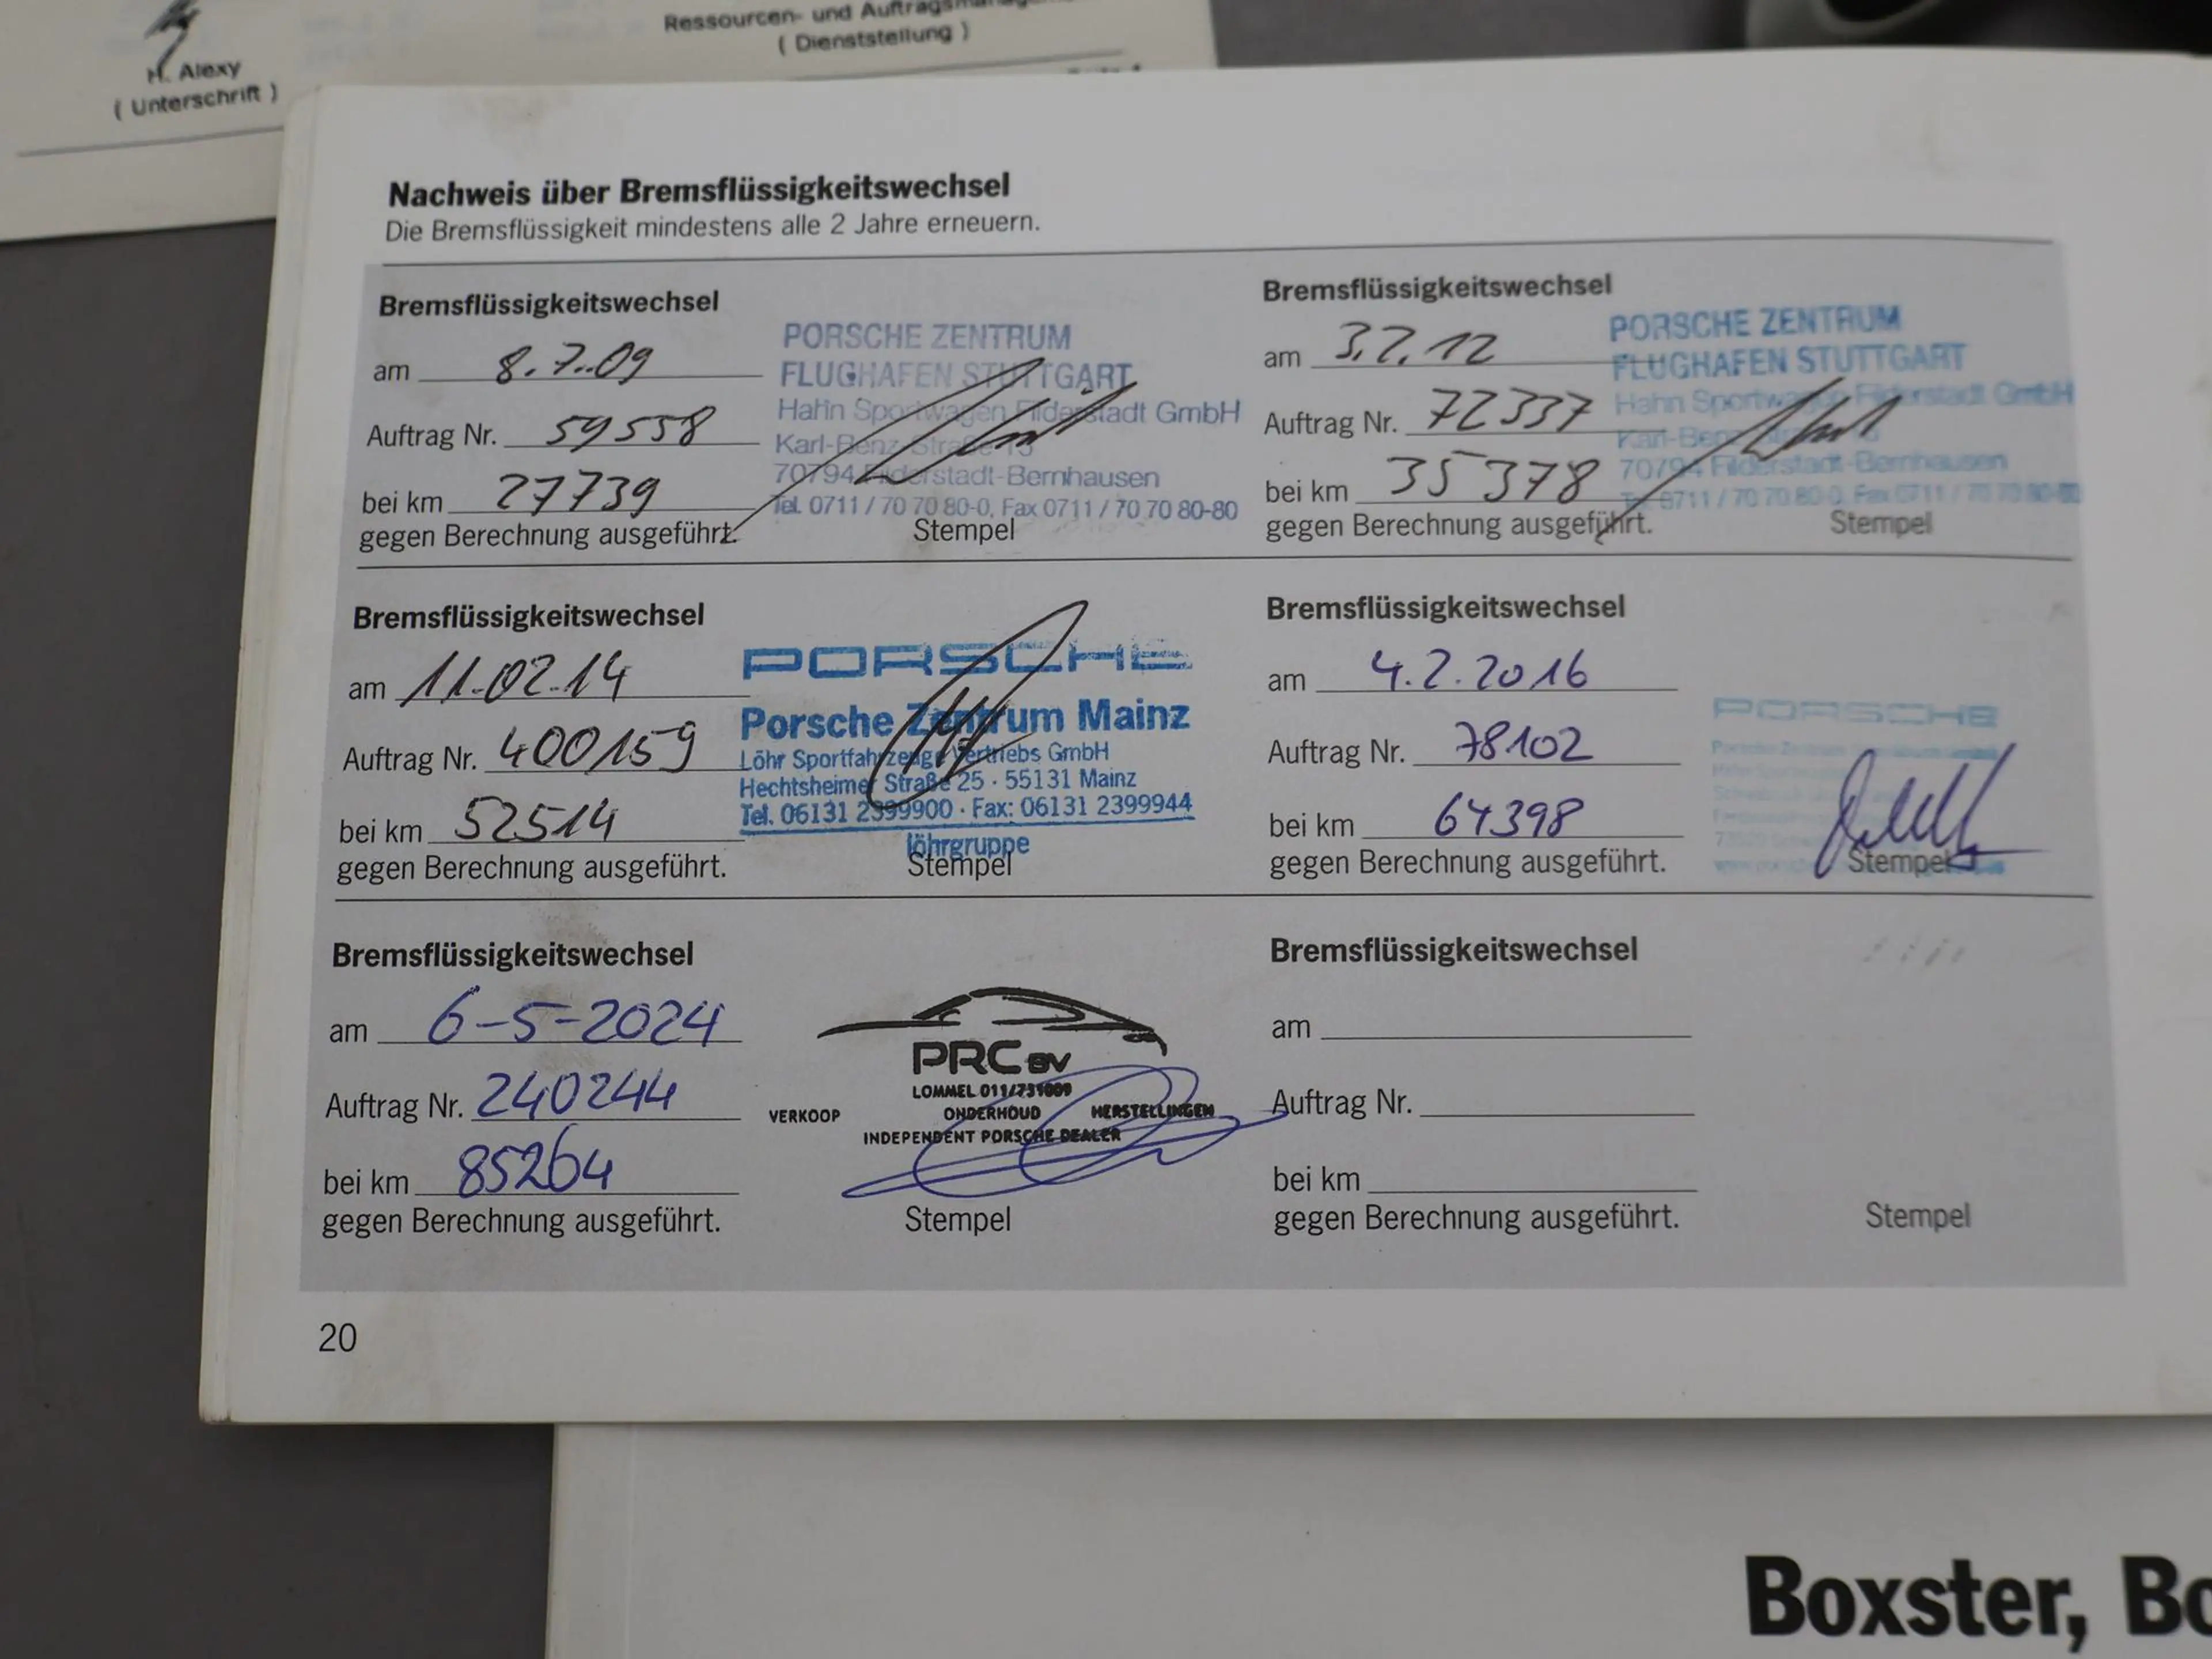 Ressourcen- und
( Dienststellung )
H. Alexy
( Unterschrift )
Nachweis über Bremsflüssigkeitswechsel
Die Bremsflüssigkeit mindestens alle 2 Jahre erneuern.
Bremsflüssigkeitswechsel
am 8.7.09
Auftrag Nr. 59558
bei km 27739
gegen Berechnung ausgeführt.
PORSCHE ZENTRUM
FLUGHAFEN STUTTGART
Hahn Sportwagen Filderstadt GmbH
Karl-Benz-Straße 13
70794 Filderstadt-Bernhausen
Tel. 0711 / 70 70 80-0, Fax 0711 / 70 70 80-80
Stempel
Bremsflüssigkeitswechsel
am 3.2.12
Auftrag Nr. 72337
bei km 35378
gegen Berechnung ausgeführt.
PORSCHE ZENTRUM
FLUGHAFEN STUTTGART
Hahn Sportwagen Filderstadt GmbH
Karl-Benz
70794 Filderstadt-Bernhausen
0711 / 70 70 80-0, Fax 0711 / 70 70 80-80
Stempel
Bremsflüssigkeitswechsel
am 11.02.14
Auftrag Nr. 400159
bei km 52514
gegen Berechnung ausgeführt.
PORSCHE
Porsche Zentrum Mainz
Löhr Sportfahrzeuge Vertriebs GmbH
Hechtsheimer Straße 25 · 55131 Mainz
Tel. 06131 2399900 · Fax: 06131 2399944
löhrgruppe
Stempel
Bremsflüssigkeitswechsel
am 4.2.2016
Auftrag Nr. 78102
bei km 64398
gegen Berechnung ausgeführt.
PORSCHE
Stempel
Bremsflüssigkeitswechsel
am 6-5-2024
Auftrag Nr. 240244
bei km 85264
gegen Berechnung ausgeführt.
PRC BV
LOMMEL 011/731009
VERKOOP ONDERHOUD HERSTELLINGEN
INDEPENDENT PORSCHE DEALER
Stempel
Bremsflüssigkeitswechsel
am
Auftrag Nr.
bei km
gegen Berechnung ausgeführt.
Stempel
20
Boxster,